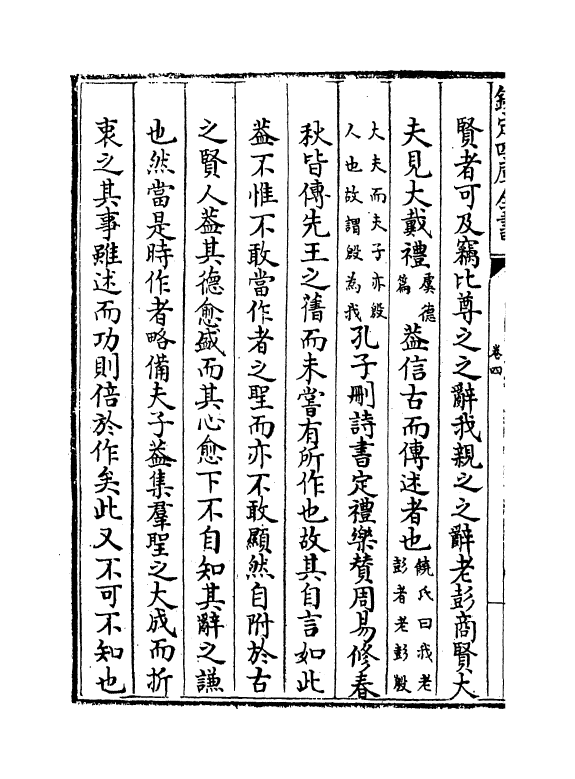 欽定四庫全書
卷四
賢者可及竊比尊之之辭我親之之辭老彭商賢大
夫見大戴禮虞德篇葢信古而傳述者也饒氏曰我老彭者老彭殷
大夫而夫子亦殷人也故謂殷為我孔子刪詩書定禮樂贊周易修春
秋皆傳先王之舊而未嘗有所作也故其自言如此
葢不惟不敢當作者之聖而亦不敢顯然自附於古
之賢人葢其德愈盛而其心愈下不自知其辭之謙
也然當是時作者略備夫子葢集羣聖之大成而折
衷之其事雖述而功則倍於作矣此又不可不知也